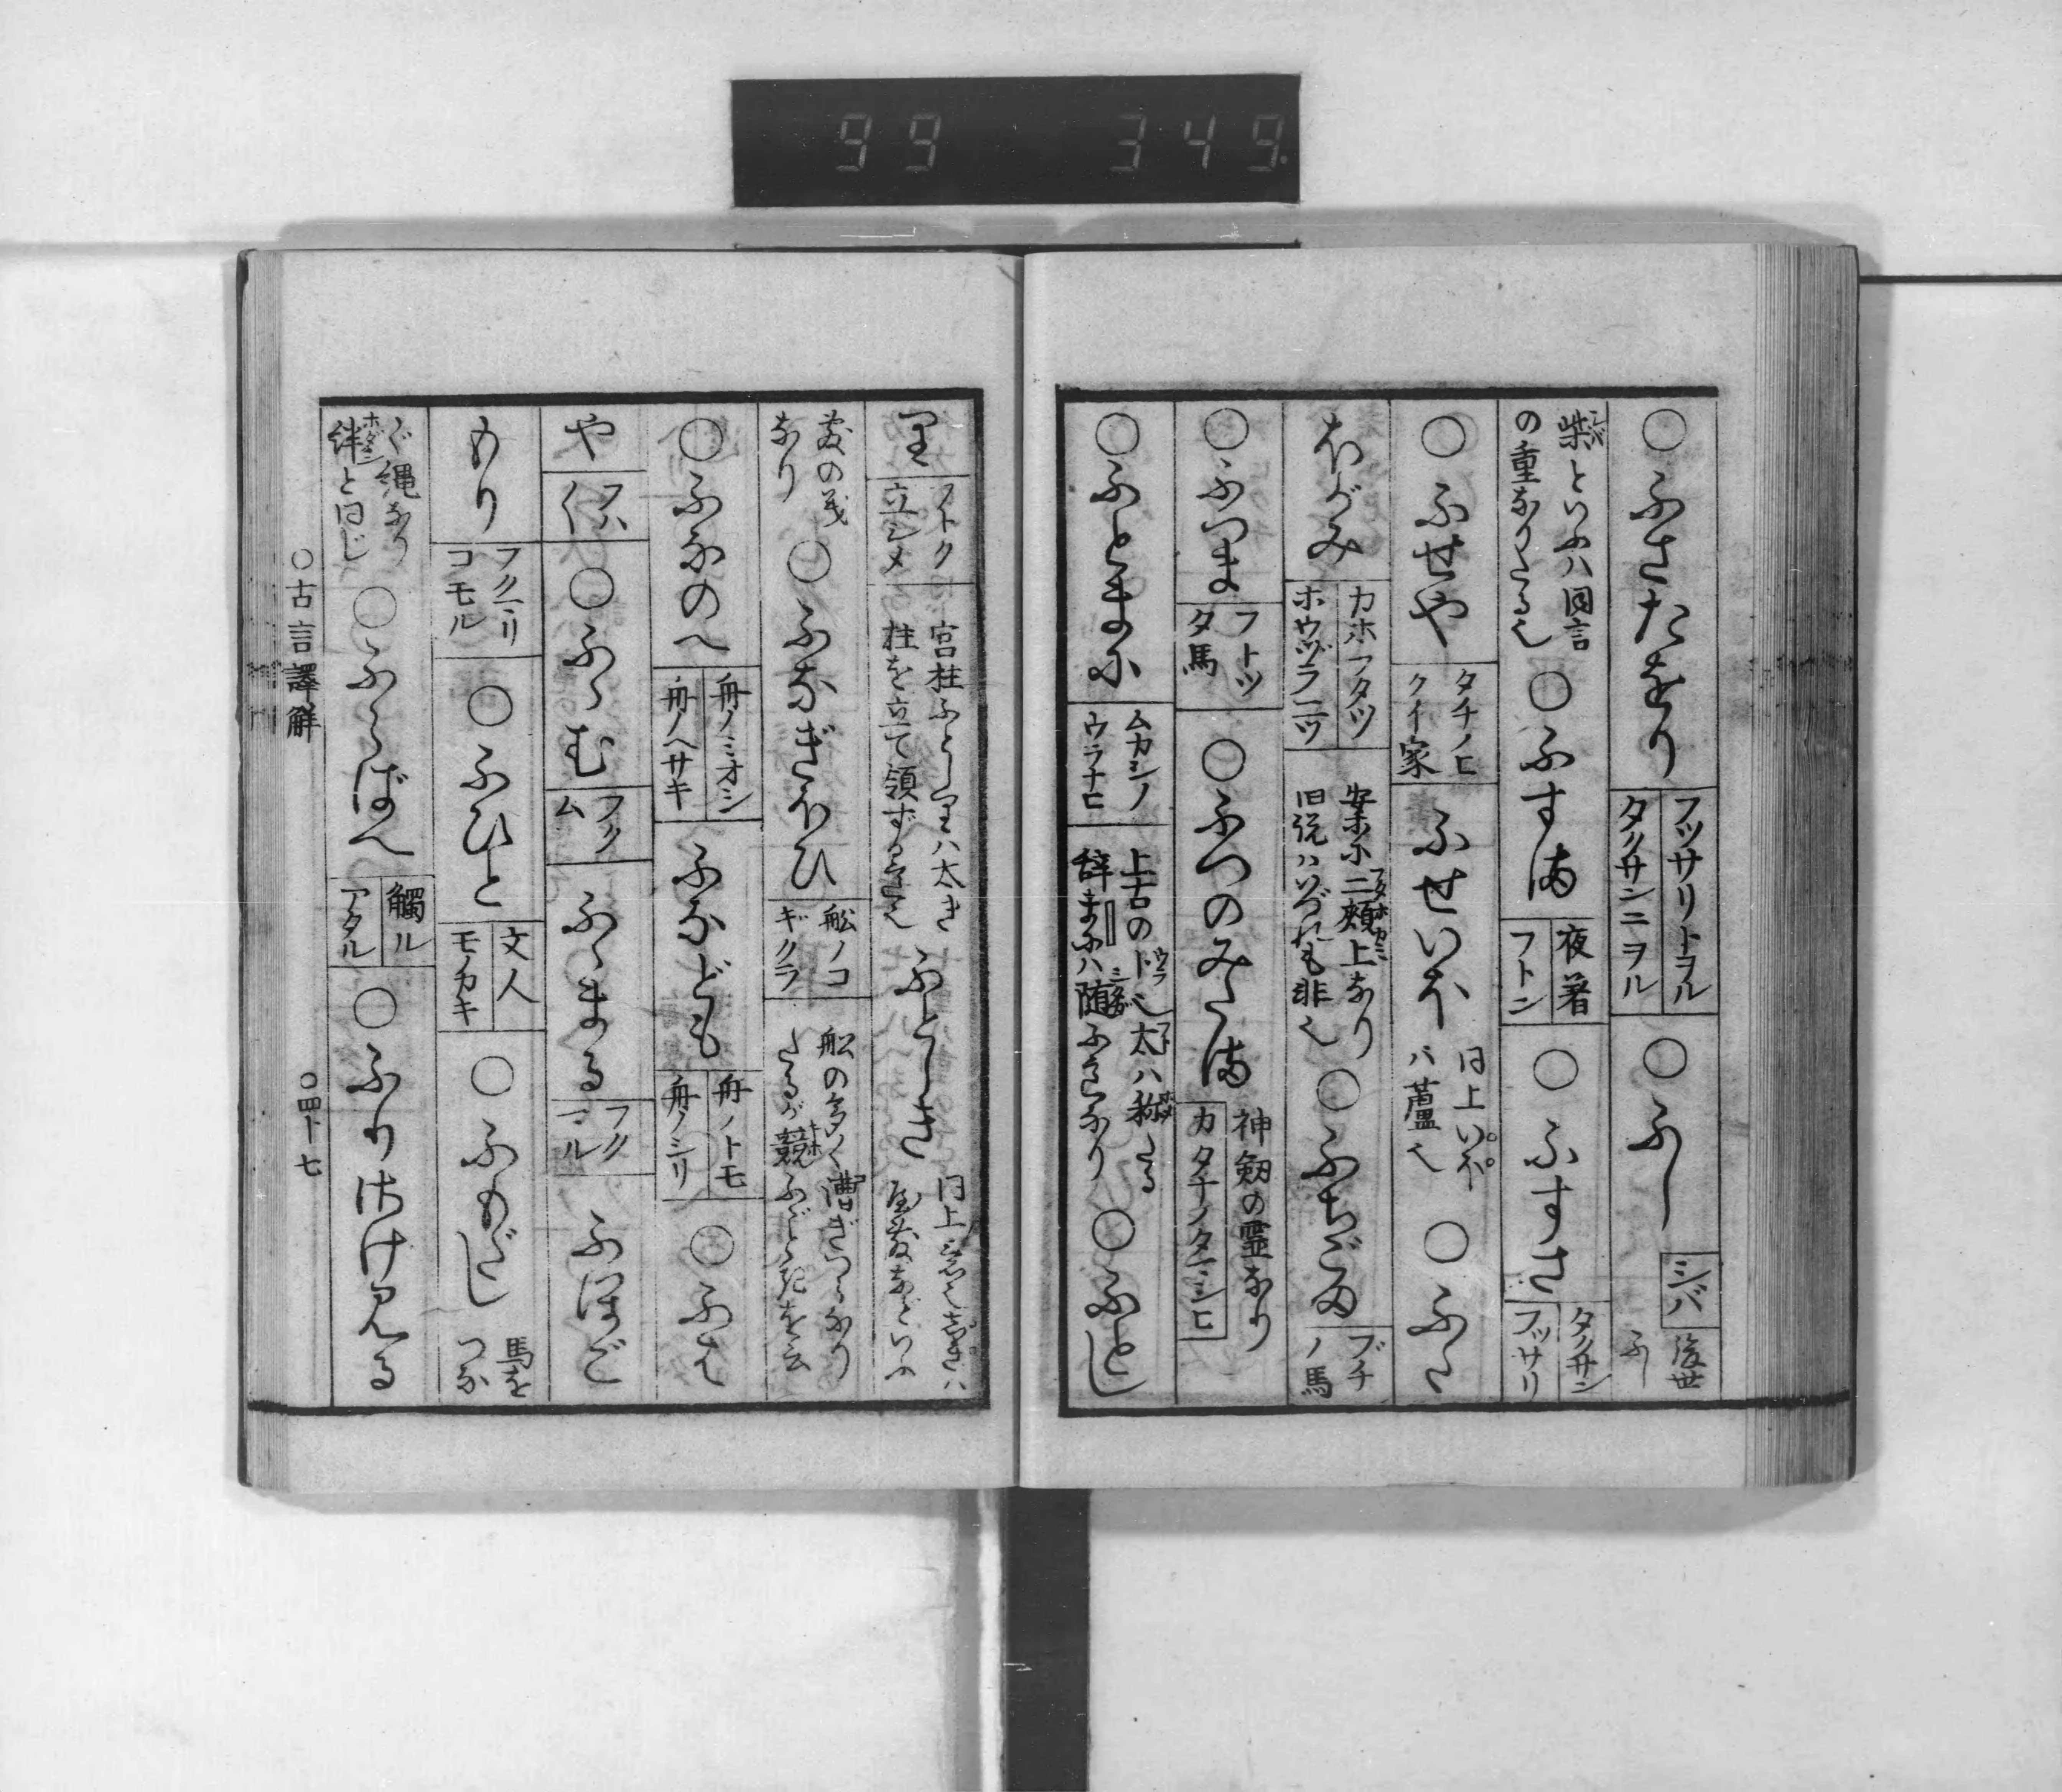 99 349
○ふさたをり フッサリトヲル タクサンニヲル ○ふし シバ 後世ふし
柴といふハ同言の重なりたる也 ○ふすま 夜著 フトン ○ふすさ タクサン フッサリ
○ふせや タチノヒクイ家 ふせいほ 同上いほハ蘆也 ○ふた
ほがみ カホフタツ ホウヅラ二ツ 案に二頬上なり旧説ハいづれも非也 ○ふちごま ブチノ馬
○ふつま フトッタ馬 ○ふつのみたま 神剱の霊なり カタナノタマシヒ
○ふとまに ムカシノウラナヒ 上古の卜也太ハ称たる辞まにハ随ふ意なり ○ふとし
里 フトク立シメ 宮柱ふとしりハ太き柱を立て領ずる意也 ふとしき 同上意也しきハ屋敷などいふ
敷の義なり ○ふなぎほひ 船ノコギクラ 舩の多く漕ぎつらなりたるが競ふごときを云
○ふなのへ 舟ノミオシ 舟ノヘサキ ふなども 舟ノトモ 舟ノシリ ○ふは
や フハ〱 ○ふゝむ フクム ふゝまる フクマル ふほご
もり フクミリコモル ○ふひと 文人 モノカキ ○ふもだし 馬をつな
ぐ縄なり絆と同じ ○ふらばへ 觸ル アタル ○ふりさけみる
○古言譯解 ○四十七